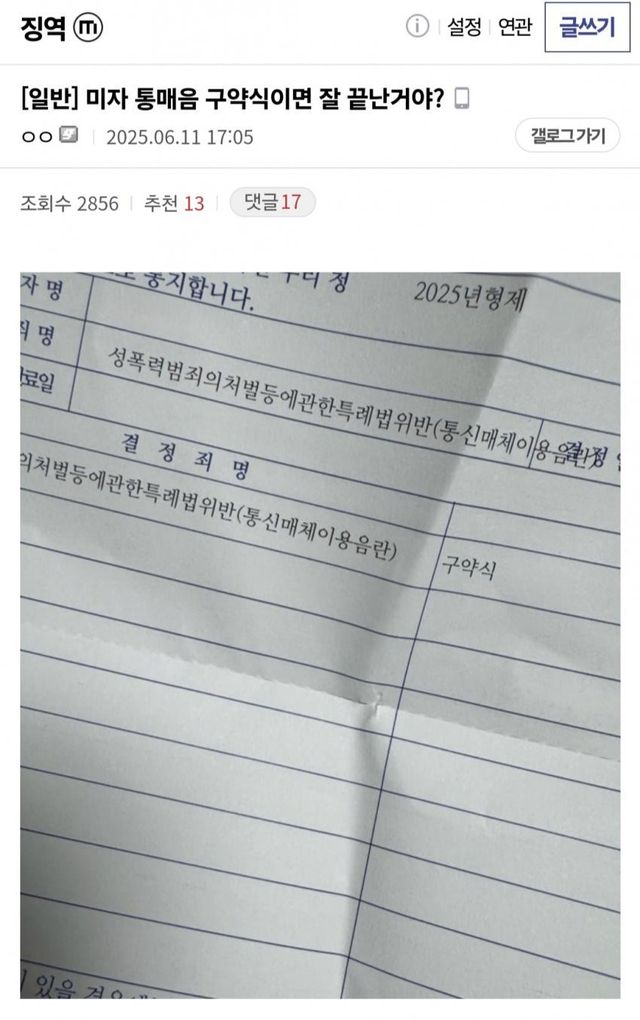 징역 ⓜ
설정 연관 글쓰기
[일반] 미자 통매음 구약식이면 잘 끝난거야?
ㅇㅇ 2025.06.11 17:05
갤로그 가기
조회수 2856 추천 13 댓글 17
통지합니다.
2025년형제
자 명
죄 명
성폭력범죄의처벌등에관한특례법위반(통신매체이용음란)
료일
결 정 죄 명
결정
의처벌등에관한특례법위반(통신매체이용음란)
구약식